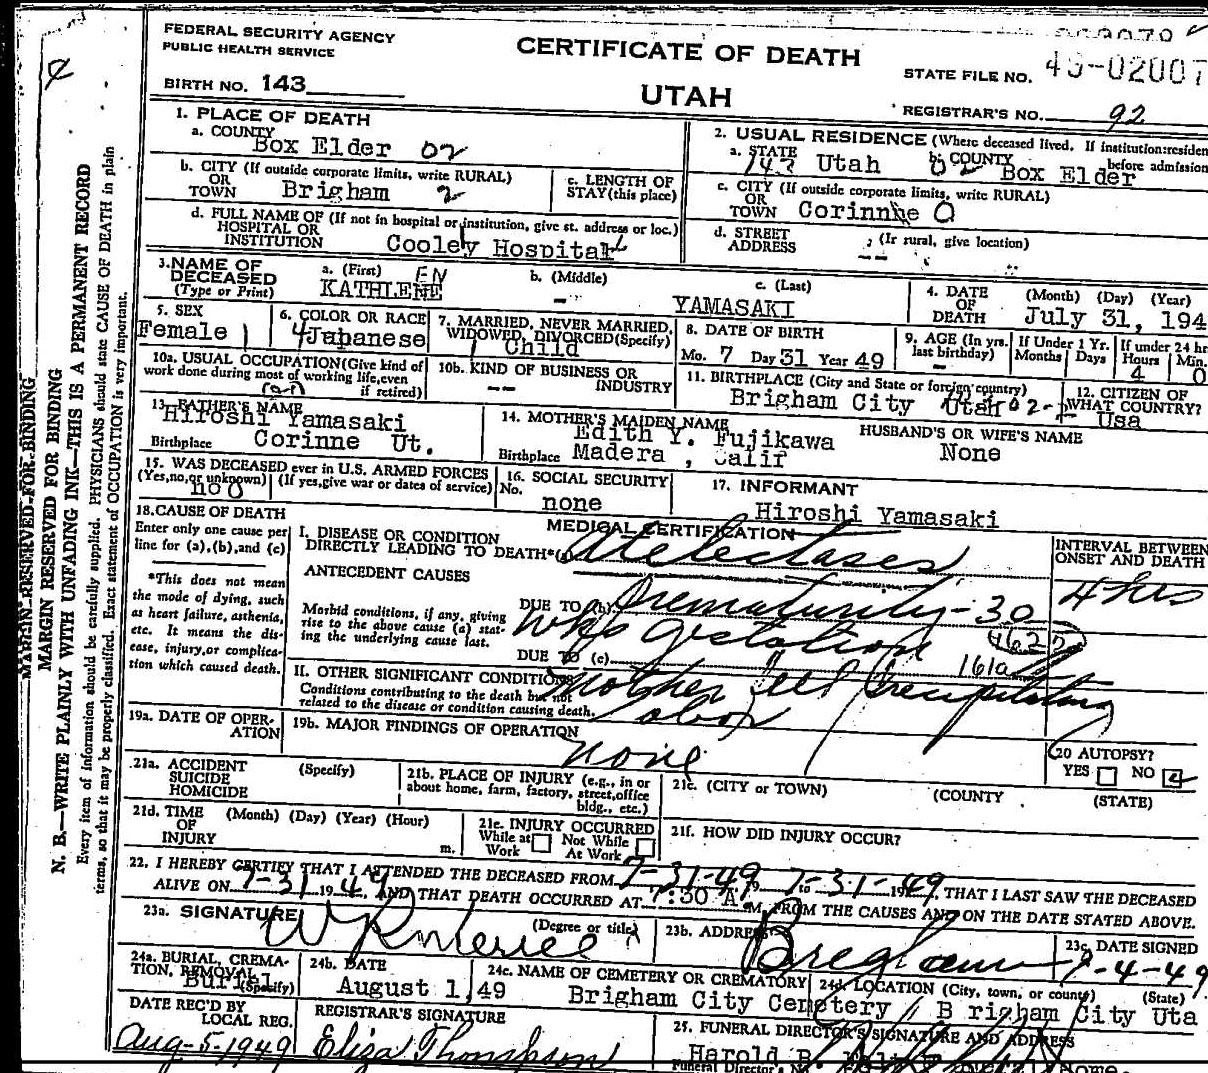 FEDERAL SECURITY AGENCY
PUBLIC HEALTH SERVICE
CERTIFICATE OF DEATH
STATE FILE NO. 49-02007
BIRTH NO. 143
UTAH
REGISTRAR'S NO. 92
1. PLACE OF DEATH
a. COUNTY
Box Elder 02
2. USUAL RESIDENCE (Where deceased lived. If institution: residen
before admission
a. STATE 143 Utah b. COUNTY 02 Box Elder
b. CITY (If outside corporate limits, write RURAL)
OR
TOWN Brigham 2
c. LENGTH OF
STAY (this place)
c. CITY (If outside corporate limits, write RURAL)
OR
TOWN Corinne 0
d. FULL NAME OF (If not in hospital or institution, give st. address or loc.)
HOSPITAL OR
INSTITUTION Cooley Hospital
d. STREET
ADDRESS (If rural, give location)
--
3. NAME OF
DECEASED
(Type or Print)
a. (First) EN
KATHLENE
b. (Middle)
-
c. (Last)
YAMASAKI
4. DATE
OF
DEATH
(Month) (Day) (Year)
July 31, 194
5. SEX
Female 1
6. COLOR OR RACE
4 Japanese
7. MARRIED, NEVER MARRIED,
WIDOWED, DIVORCED (Specify)
1 Child
8. DATE OF BIRTH
Mo. 7 Day 31 Year 49
9. AGE (In yrs.
last birthday)
-
If Under 1 Yr.
Months Days
If under 24 hr
Hours Min.
4 0
10a. USUAL OCCUPATION (Give kind of
work done during most of working life, even
if retired)
10b. KIND OF BUSINESS OR
-- INDUSTRY
11. BIRTHPLACE (City and State or foreign country)
Brigham City Utah 02-2
12. CITIZEN OF
WHAT COUNTRY?
Usa
13. FATHER'S NAME
Hiroshi Yamasaki
Birthplace Corinne Ut.
14. MOTHER'S MAIDEN NAME
Edith Y. Fujikawa
Birthplace Madera , Calif
HUSBAND'S OR WIFE'S NAME
None
15. WAS DECEASED ever in U.S. ARMED FORCES
(Yes, no, or unknown) (If yes, give war or dates of service)
no 0
16. SOCIAL SECURITY
No.
none
17. INFORMANT
Hiroshi Yamasaki
18. CAUSE OF DEATH
Enter only one cause per
line for (a), (b), and (c)
*This does not mean
the mode of dying, such
as heart failure, asthenia,
etc. It means the dis-
ease, injury, or complica-
tion which caused death.
MEDICAL CERTIFICATION
I. DISEASE OR CONDITION
DIRECTLY LEADING TO DEATH*(a) Atelectases
INTERVAL BETWEEN
ONSET AND DEATH
4 hrs
ANTECEDENT CAUSES
Morbid conditions, if any, giving
rise to the above cause (a) stat-
ing the underlying cause last.
DUE TO (b) Prematurity - 30
wks gestation
DUE TO (c)
161a
II. OTHER SIGNIFICANT CONDITIONS
Conditions contributing to the death but not
related to the disease or condition causing death.
Mother fell precipitating
labor
19a. DATE OF OPER-
ATION
19b. MAJOR FINDINGS OF OPERATION
none
20 AUTOPSY?
YES NO
21a. ACCIDENT
SUICIDE
HOMICIDE
(Specify)
21b. PLACE OF INJURY (e.g., in or
about home, farm, factory, street, office
bldg., etc.)
21c. (CITY or TOWN) (COUNTY (STATE)
21d. TIME
OF
INJURY
(Month) (Day) (Year) (Hour)
m.
21e. INJURY OCCURRED
While at Work Not While At Work
21f. HOW DID INJURY OCCUR?
22. I HEREBY CERTIFY THAT I ATTENDED THE DECEASED FROM 7-31-49, 19 to 7-31-1949, THAT I LAST SAW THE DECEASED
ALIVE ON 7-31 1949 AND THAT DEATH OCCURRED AT 7:30 A. M, FROM THE CAUSES AND ON THE DATE STATED ABOVE.
23a. SIGNATURE
(Degree or title)
23b. ADDRESS
Brigham
23c. DATE SIGNED
9-4-49
24a. BURIAL, CREMA-
TION, REMOVAL
(Specify)
Burial
24b. DATE
August 1,49
24c. NAME OF CEMETERY OR CREMATORY
Brigham City Cemetery
24d. LOCATION (City, town, or county) (State)
B righam City Uta
DATE REC'D BY
LOCAL REG.
Aug-5-1949
REGISTRAR'S SIGNATURE
Eliza Thompson
25. FUNERAL DIRECTOR'S SIGNATURE AND ADDRESS
Harold B.
Funeral Director's
MARGIN RESERVED FOR BINDING
MARGIN RESERVED FOR BINDING
N. B.—WRITE PLAINLY WITH UNFADING INK—THIS IS A PERMANENT RECORD
Every item of information should be carefully supplied. PHYSICIANS should state CAUSE OF DEATH in plain
terms, so that it may be properly classified. Exact statement of OCCUPATION is very important.